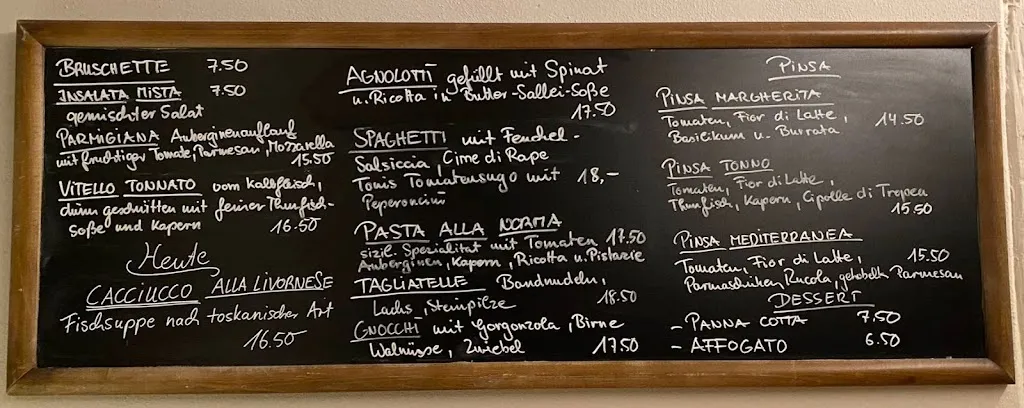 BRUSCHETTE 7.50
INSALATA MISTA 7.50
gemischter Salat
PARMIGIANA Auberginenauflauf
mit fruchtiger Tomate, Parmesan, Mozzarella
15.50
VITELLO TONNATO vom Kalbfleisch,
dünn geschnitten mit feiner Thunfisch-
soße und Kapern 16.50
Heute
CACCIUCCO ALLA LIVORNESE
Fischsuppe nach toskanischer Art
16.50
AGNOLOTTI gefüllt mit Spinat
u. Ricotta in Butter-Salbei-Soße
17.50
SPAGHETTI mit Fenchel-
Salsiccia, Cime di Rape
Tomatensugo mit 18,-
Peperoncini
PASTA ALLA NORMA
sizil. Spezialität mit Tomaten 17.50
Auberginen, Kapern, Ricotta u. Pistazie
TAGLIATELLE Bandnudeln,
Lachs, Steinpilze 18.50
GNOCCHI mit Gorgonzola, Birne
Walnüsse, Zwiebel 17.50
PINSA
PINSA MARGHERITA
Tomaten, Fior di Latte, 14.50
Basilikum u. Burrata
PINSA TONNO
Tomaten, Fior di Latte,
Thunfisch, Kapern, Cipolle di Tropea
15.50
PINSA MEDITERRANEA
Tomaten, Fior di Latte, 15.50
Parmaschinken, Rucola, gehobelt. Parmesan
DESSERT
- PANNA COTTA 7.50
- AFFOGATO 6.50